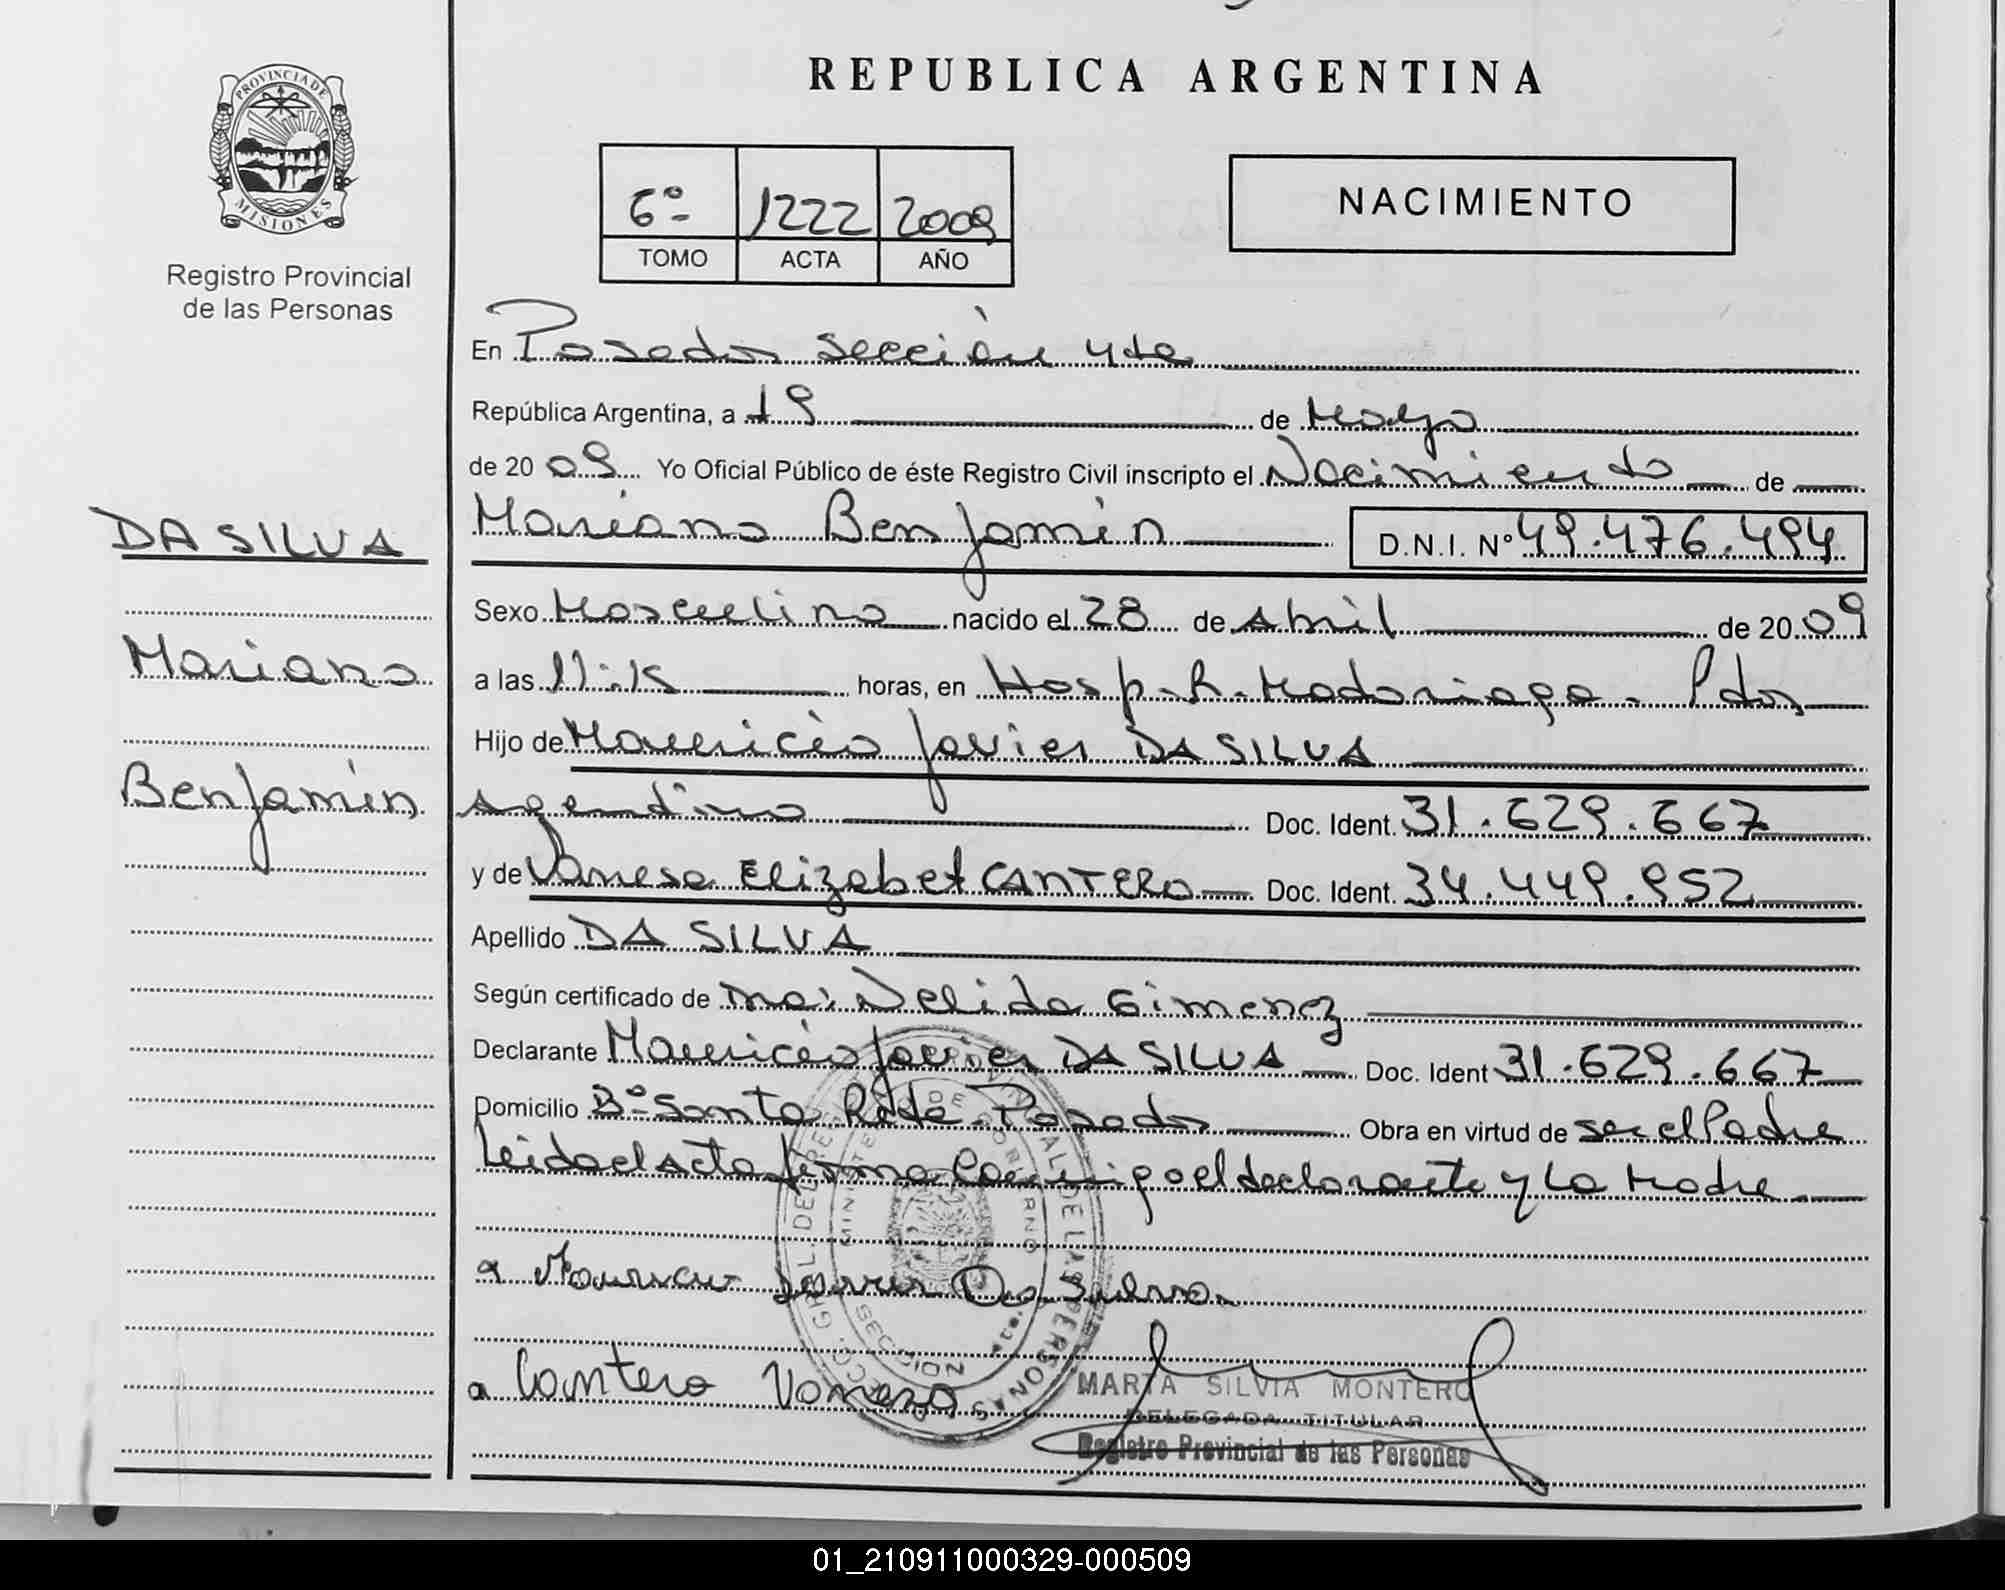 REPUBLICA ARGENTINA
PROVINCIA DE
MISIONES
Registro Provincial
de las Personas
6º 1222 2009
TOMO ACTA AÑO
NACIMIENTO
En Posadas sección 4ta
República Argentina, a 19 de Mayo
de 20 09 Yo Oficial Público de éste Registro Civil inscripto el Nacimiento de
Mariano Benjamín D.N.I. Nº 49.476.494
DA SILVA
Mariano
Benjamín
Sexo Masculino nacido el 28 de Abril de 20 09
a las 11:15 horas, en Hosp. R. Madariaga - Pdas
Hijo de Mauricio Javier DA SILVA
Argentino Doc. Ident. 31.629.667
y de Vanesa Elizabet CANTERO Doc. Ident. 34.449.952
Apellido DA SILVA
Según certificado de Nelida Gimenez
Declarante Mauricio Javier DA SILVA Doc. Ident 31.629.667
Domicilio Bº Santa Rita - Posadas Obra en virtud de ser el Padre
Leida el Acta firma Conmigo el declarante y La Madre
a Mauricio Javier Da Silva
a Cantero Vanesa
SECCION
MARTA SILVIA MONTERO
DELEGADA TITULAR
Registro Provincial de las Personas
01_210911000329-000509